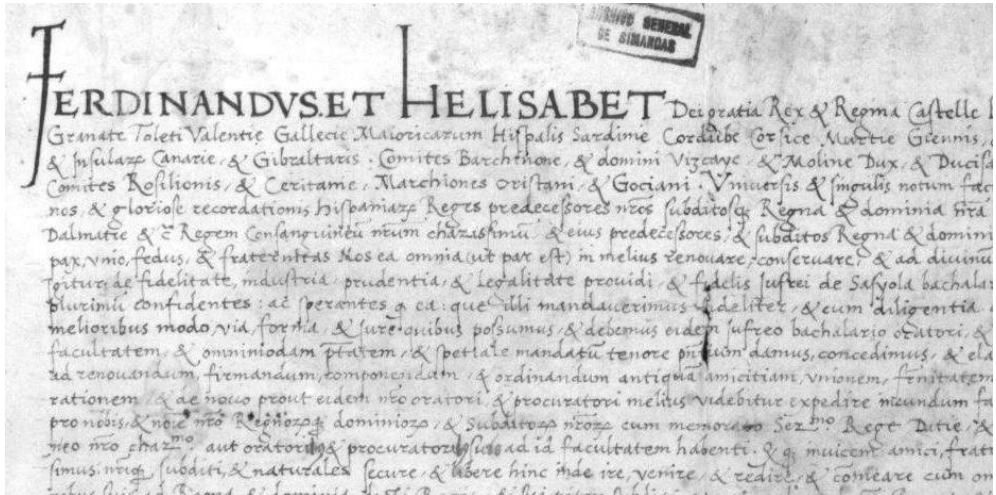 ARCHIVO GENERAL
DE SIMANCAS
FERDINANDVS.ET HELISABET Dei gratia Rex & Regina Castelle
Granate Toleti Valentie Gallecie Maioricarum Hispalis Sardinie Cordube Corsice Murtie Giennis,
& Insularꝝ Canarie, & Gibraltaris. Comites Barchinone, & domini Vizcaye, & Moline Dux, & Ducissa
Comites Rosilionis, & Ceritanie, Marchiones Oristani, & Gociani. Vniuersis & singulis notum
nos, & gloriose recordationis hispaniarꝝ Reges predecessores nr̃os subditosqꝫ Regna & dominia nr̃a
Dalmatie & c̃ Regem Consanguineũ nr̃um charissimũ & eius predecessores, & subditos Regna & domini
pax, vnio, fedus, & fraternitas Nos ea omnia (ut par est) in melius renouare, conseruare, & ad diuinũ
igitur de fidelitate, industria prudentia, & legalitate prouidi, & fidelis Jufrei de Sasyola bachalar
plurimũ confidentes: ac sperantes q ea: que illi mandauerimus fideliter, & cum diligentia
melioribus modo, via, forma, & iure quibus possumus, & debemus eidem Jufreo bachalario oratori, &
facultatem, & omnimodam p̃tatem, & spetiale mandatũ tenore pñtium damus, concedimus, & ela
ad renouandum, firmandum, componendam, & ordinandum antiquã amicitiam, vnionem, fr̃nitatem
rationem, & de nouo prout eidem nr̃o oratori, & procuratori melius videbitur expedire ineundum fa
pro nobis, & noĩe nr̃o Regnorꝝqꝫ dominiorꝝ, & Subditorꝝ nr̃orꝝ cum memorato Ser.mo Rege &
neo nr̃o char.mo, aut oratoribus & procuratoribus suis ad id facultatem habenti. & q inuicem amici, frat
simus: nr̃iqꝫ subditi, & naturales secure, & libere hinc inde ire, venire, & redire, & comeare cum